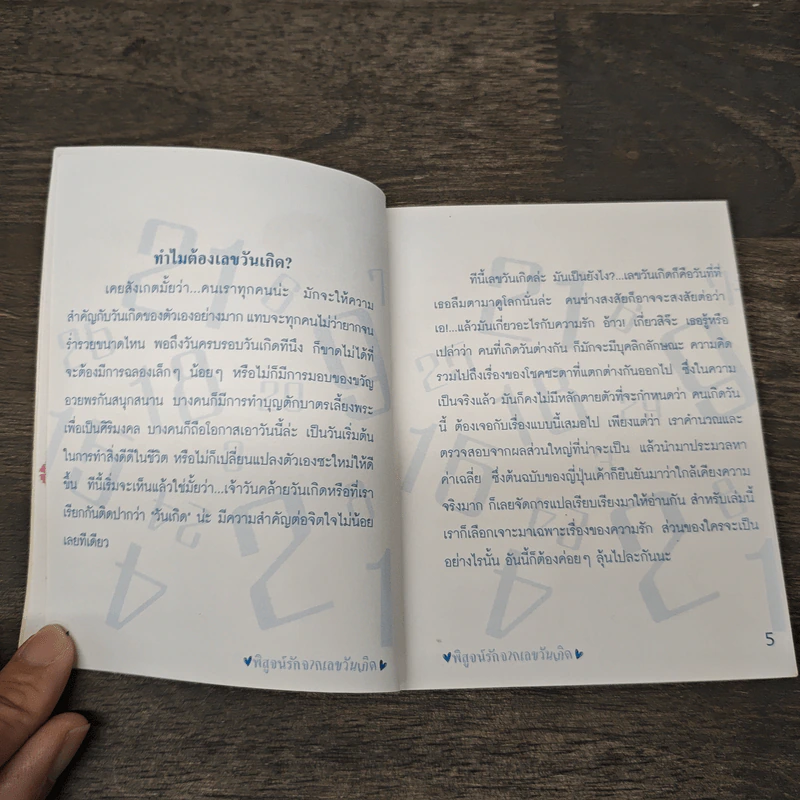 ทำไมต้องเลขวันเกิด?
เคยสังเกตมั้ยว่า...คนเราทุกคนน่ะ มักจะให้ความ
สำคัญกับวันเกิดของตัวเองอย่างมาก แทบจะทุกคนไม่ว่ายากจน
ร่ำรวยขนาดไหน พอถึงวันครบรอบวันเกิดทีนึง ก็ขาดไม่ได้ที่
จะต้องมีการฉลองเล็กๆ น้อยๆ หรือไม่ก็มีการมอบของขวัญ
อวยพรกันสนุกสนาน บางคนก็มีการทำบุญตักบาตรเลี้ยงพระ
เพื่อเป็นศิริมงคล บางคนก็ถือโอกาสเอาวันนี้ล่ะ เป็นวันเริ่มต้น
ในการทำสิ่งดีดีในชีวิต หรือไม่ก็เปลี่ยนแปลงตัวเองซะใหม่ให้ดี
ขึ้น ทีนี้เริ่มจะเห็นแล้วใช่มั้ยว่า...เจ้าวันคล้ายวันเกิดหรือที่เรา
เรียกกันติดปากว่า 'วันเกิด' น่ะ มีความสำคัญต่อจิตใจไม่น้อย
เลยทีเดียว
พิสูจน์รักจากเลขวันเกิด
ทีนี้เลขวันเกิดล่ะ มันเป็นยังไง?...เลขวันเกิดก็คือวันที่ที่
เธอลืมตามาดูโลกนั่นล่ะ คนช่างสงสัยก็อาจจะสงสัยต่อว่า
เอ!...แล้วมันเกี่ยวอะไรกับความรัก อ้าว! เกี่ยวสิจ๊ะ เธอรู้หรือ
เปล่าว่า คนที่เกิดวันต่างกัน ก็มักจะมีบุคลิกลักษณะ ความคิด
รวมไปถึงเรื่องของโชคชะตาที่แตกต่างกันออกไป ซึ่งในความ
เป็นจริงแล้ว มันก็คงไม่มีหลักตายตัวที่จะกำหนดว่า คนเกิดวัน
นี้ ต้องเจอกับเรื่องแบบนี้เสมอไป เพียงแต่ว่า เราคำนวณและ
ตรวจสอบจากผลส่วนใหญ่ที่น่าจะเป็น แล้วนำมาประมวลหา
ค่าเฉลี่ย ซึ่งต้นฉบับของญี่ปุ่นเค้าก็ยืนยันมาว่าใกล้เคียงความ
จริงมาก ก็เลยจัดการแปลเรียบเรียงมาให้อ่านกัน สำหรับเล่มนี้
เราก็เลือกเจาะมาเฉพาะเรื่องของความรัก ส่วนของใครจะเป็น
อย่างไรนั้น อันนี้ก็ต้องค่อยๆ ลุ้นไปละกันนะ
พิสูจน์รักจากเลขวันเกิด
5